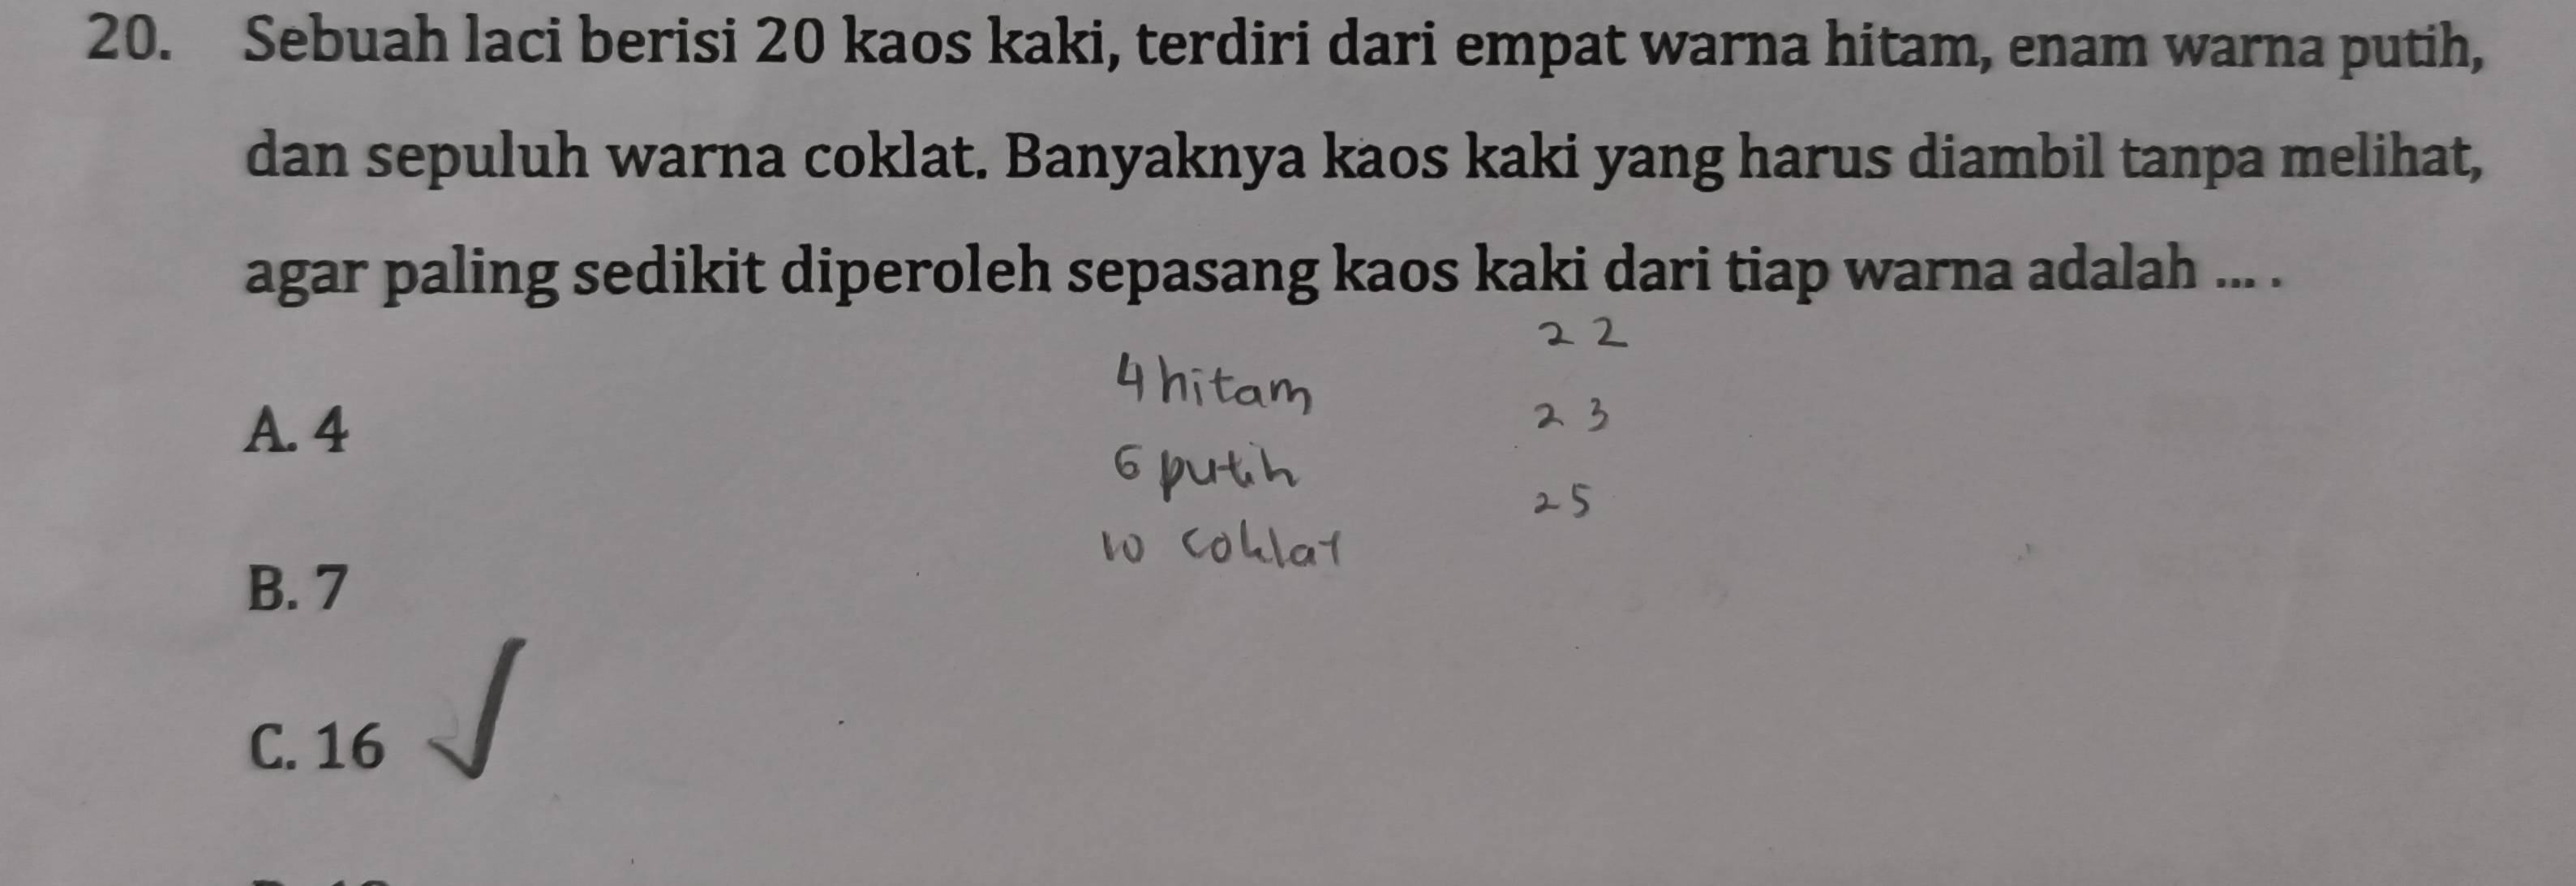 20. Sebuah laci berisi 20 kaos kaki, terdiri dari empat warna hitam, enam warna putih,
dan sepuluh warna coklat. Banyaknya kaos kaki yang harus diambil tanpa melihat,
agar paling sedikit diperoleh sepasang kaos kaki dari tiap warna adalah ... .
2 2
4 hitam
2 3
A. 4
6 putih
2 5
10 coklat
B. 7
C. 16